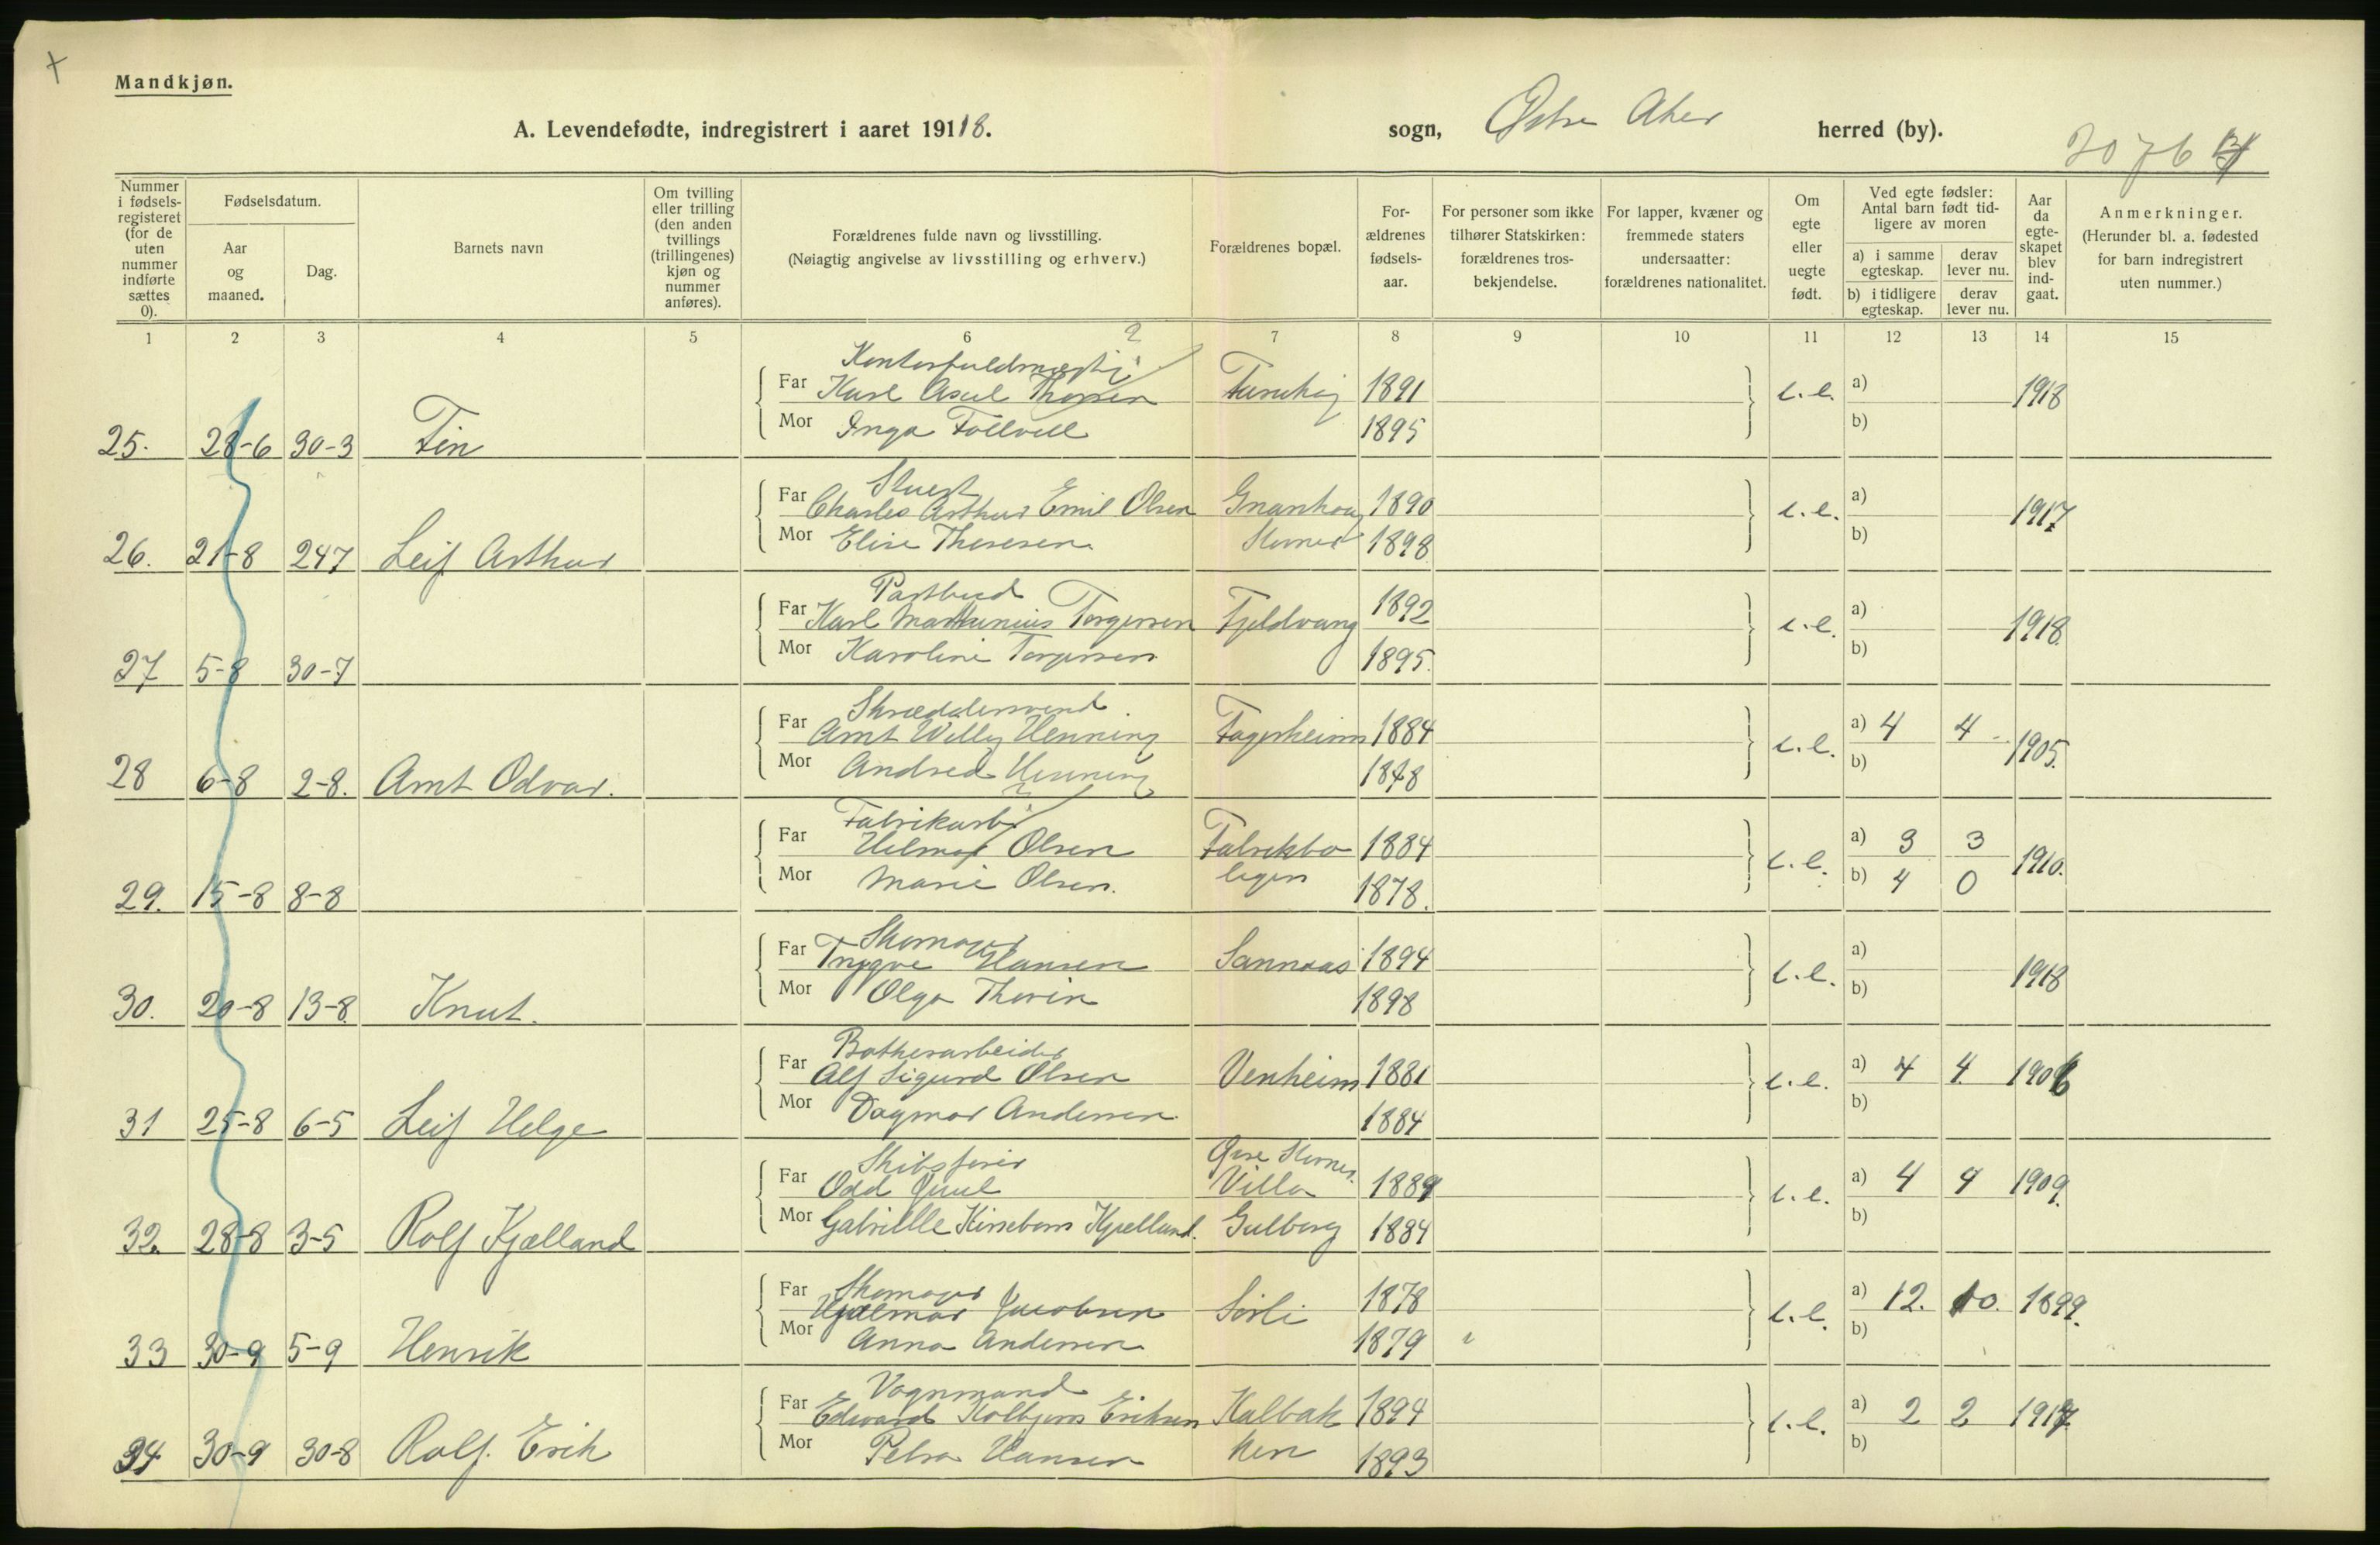 Mandkjøn.
A. Levendefødte, indregistrert i aaret 19118.
sogn, Østre Aker herred (by).
2076
Nummer i fødsels-registeret (for de uten nummer indførte sættes 0).
Fødselsdatum.
Aar og maaned.
Dag.
Barnets navn
Om tvilling eller trilling (den anden tvillings (trillingenes) kjøn og nummer anføres).
Forældrenes fulde navn og livsstilling.
(Nøiagtig angivelse av livsstilling og erhverv.)
Forældrenes bopæl.
For-ældrenes fødsels-aar.
For personer som ikke tilhører Statskirken: forældrenes tros-bekjendelse.
For lapper, kvæner og fremmede staters undersaatter: forældrenes nationalitet.
Om egte eller uegte født.
Ved egte fødsler: Antal barn født tid-ligere av moren
a) i samme egteskap.
derav lever nu.
b) i tidligere egteskap.
derav lever nu.
Aar da egte-skapet blev ind-gaat.
Anmerkninger.
(Herunder bl. a. fødested for barn indregistrert uten nummer.)
1 2 3 4 5 6 7 8 9 10 11 12 13 14 15
Kontorfuldmægtig
Far Karl Axel Thorsen 1891 e.e. a) 1918
Mor Inga Follvell 1895 b)
25. 28-6 30-3 Fin
Stuert
Far Charles Arthur Emil Olsen Granhaug 1890 e.e. a) 1917
Mor Elise Theresen Stovner 1898 b)
26. 21-8 247 Leif Arthur
Postbud
Far Karl Marthinius Torgersen Fjeldvang 1892 e.e. a) 1918
Mor Karoline Torgersen 1895. b)
27 5-8 30-7
Skræddersvend
Far Arnt Willy Henning Fagerheim 1884 e.e. a) 4 4 1905.
Mor Andrea Henning b)
28 6-8 2-8. Arnt Odvar.
Fabrikarb.
Far Hilmar Olsen Fabrikbo 1884 e.e. a) 3 3 1910.
Mor Marie Olsen. ligen 1878. b) 4 0
29. 15-8 8-8
Skomager
Far Trygve Hansen Sannaas 1894 e.e. a) 1918
Mor Olga Thorin 1898 b)
30. 20-8 13-8. Knut.
Far Alf Sigurd Olsen Venheim 1881 e.e. a) 4 4. 1906
Mor Dagmar Andersen 1884 b)
31 25-8 6-5 Leif Helge
Skibsfører Øvre Stovner.
Far Odd Juul Villa 1889 e.e. a) 4 4 1909.
Mor Gabrielle Kirsebom Kjælland. Gulberg 1884 b)
32. 28-8 3-5 Rolf Kjælland
Skomager
Far Hjalmar Jacobsen Sørli 1878 e.e. a) 12. 10. 1899.
Mor Anna Andersen 1879 b)
33 30-9 5-9 Henrik
Vognmand
Far Edvard Kolbjørn Eriksen Kalbak 1894 e.e. a) 2 2 1917.
Mor Petra Hansen ken 1893 b)
34 30-9 30-8 Rolf. Erik